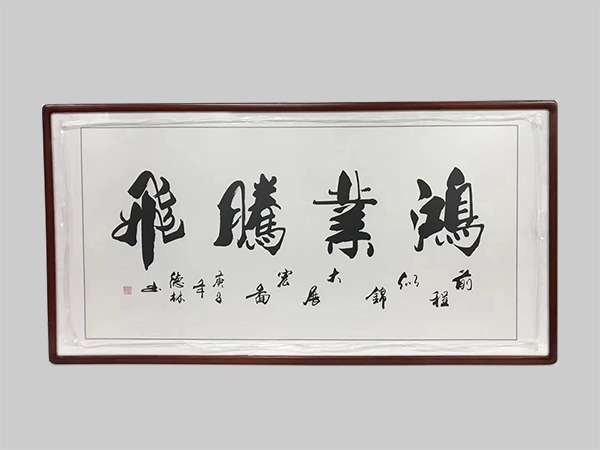 鴻業騰飛
前程似錦大展宏圖庚子年德林書